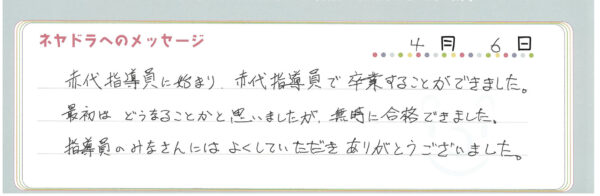 ネヤドラへのメッセージ
4月 6日
赤代指導員に始まり、赤代指導員で卒業することができました。
最初は どうなることかと思いましたが、無時に合格できました。
指導員のみなさんには よくしていただき ありがとうございました。